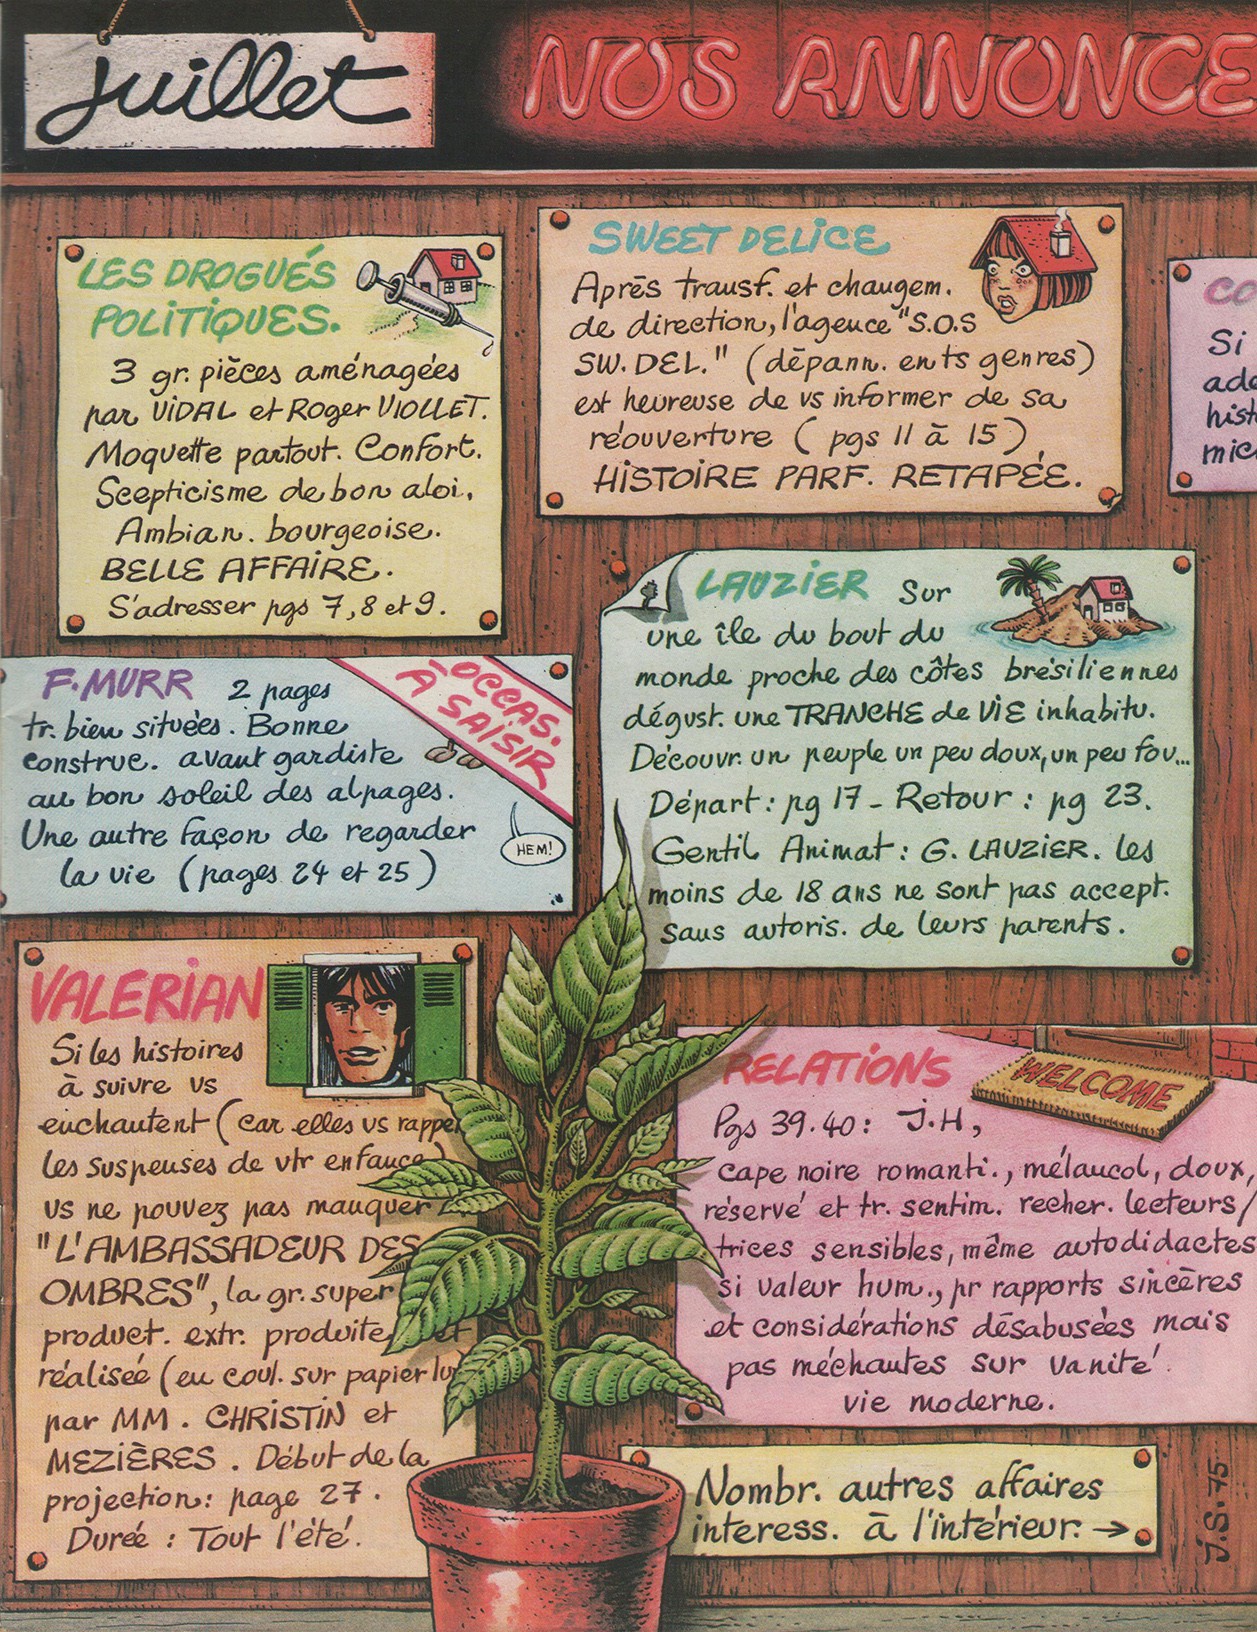 juillet
NOS ANNONCE
LES DROGUÉS
POLITIQUES.
3 gr. pièces aménagées
par VIDAL et Roger VIOLLET.
Moquette partout. Confort.
Scepticisme de bon aloi.
Ambian. bourgeoise.
BELLE AFFAIRE.
S'adresser pgs 7, 8 et 9.
SWEET DELICE
Après transf. et changem.
de direction, l'agence "S.O.S
SW. DEL." (dépann. en ts genres)
est heureuse de vs informer de sa
réouverture ( pgs 11 à 15 )
HISTOIRE PARF. RETAPÉE.
CO
Si
ade
hist
mic
F. MURR 2 pages
tr. bien situées. Bonne
construc. avant gardiste
au bon soleil des alpages.
Une autre façon de regarder
la vie (pages 24 et 25)
OCCAS.
À SAISIR
HEM!
LAUZIER Sur
une île du bout du
monde proche des côtes brésiliennes
dégust. une TRANCHE de VIE inhabitu.
Découvr. un peuple un peu doux, un peu fou...
Départ : pg 17 - Retour : pg 23.
Gentil Animat : G. LAUZIER. Les
moins de 18 ans ne sont pas accept.
sans autoris. de leurs parents.
VALERIAN
Si les histoires
à suivre vs
enchantent (car elles vs rappel
les suspenses de vtr enfance)
vs ne pouvez pas manquer
"L'AMBASSADEUR DES
OMBRES", la gr. super
product. extr. produite et
réalisée (en coul. sur papier lux
par MM. CHRISTIN et
MEZIÈRES. Début de la
projection : page 27.
Durée : Tout l'été.
RELATIONS
WELCOME
Pgs 39.40 : J.H,
cape noire romanti., mélancol, doux,
réservé et tr. sentim. recher. lecteurs/
trices sensibles, même autodidactes
si valeur hum., pr rapports sincères
et considérations désabusées mais
pas méchantes sur vanité
vie moderne.
Nombr. autres affaires
interess. à l'intérieur. →
J.S. 75